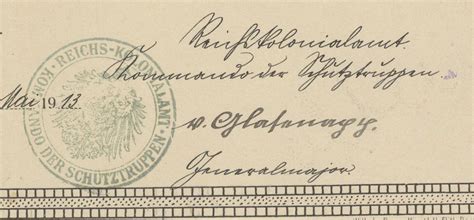 Reichskolonialamt.
Kommando der Schutztruppen
v. Glasenapp.
Generalmajor.
Mai 1913.
REICHS-KOLONIALAMT
KOMMANDO DER SCHUTZTRUPPEN